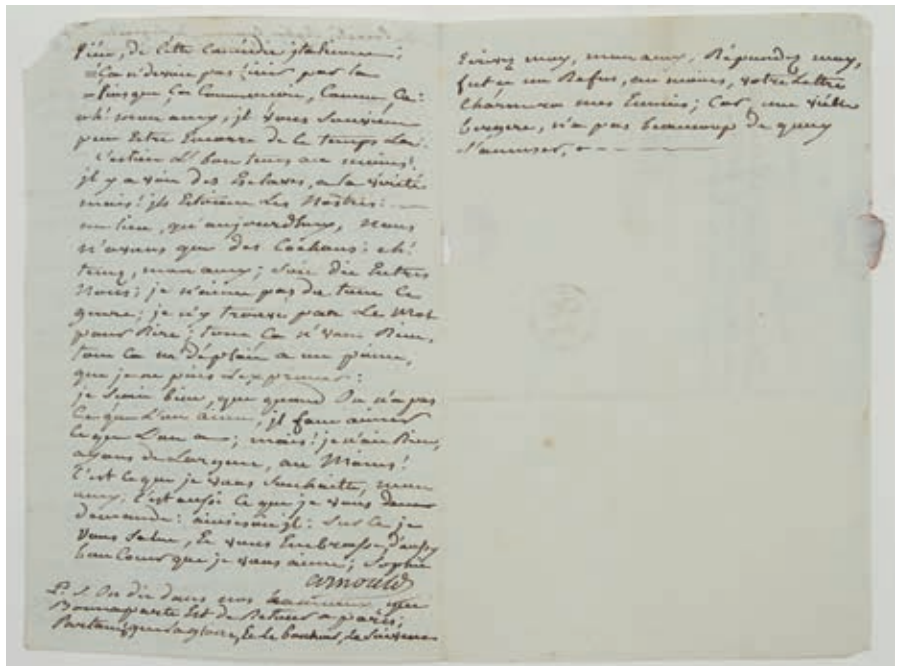 de cette Comédie jtalienne;
=Ça n'devoit pas finir par la
=Puisque Ça Commençoit, Comme, Ça:
oh! mon amy, jl vous Souvien
peut Estre Encorre de ce temps La:
C'estoit Le bon tems au moins!
jl y avoit des Esclaves, a la vérité
mais! jls Estoient Les Nostres:
au lieu, qu'aujourdhuy, Nous
n'avons que des Cochons: eh!
tens, mon amy; Soit dit Entres
Nous; je n'aime pas du tout Ce
genre; je n'y trouve pas Le Mot
pour Rire; tout Ca n'vaut Rien,
tout Ca m'déplait a un point,
que je ne puis L'exprimer:
je Scais bien, que quand On n'a pas
Ce que L'on aime, jl faut aimer
Ce que L'on a; mais! je n'ai Rien,
ayons de L'argent, au Moins!
C'est Ce que je vous Souhaitte, mon
amy; C'est aussi Ce que je vous
demande: ainsi soit jl: Sur Ce je
vous Salue, Et vous Embrasse, d'aussy
bon Coeur que je vous aime; Sophie
arnould
P. S. On dit dans nos hameaux, que
Bonnaparte Est de Retour a paris,
Partout, que La gloire, Et le bonheur, Le Suivent
Ecrivez moy, mon amy, Répondez moy,
fut-ce un Refus, au moins, votre Lettre
Charmera mes Ennuis; Car, une vieille
bergere, n'a pas beaucoup de quoy
S'amuser,